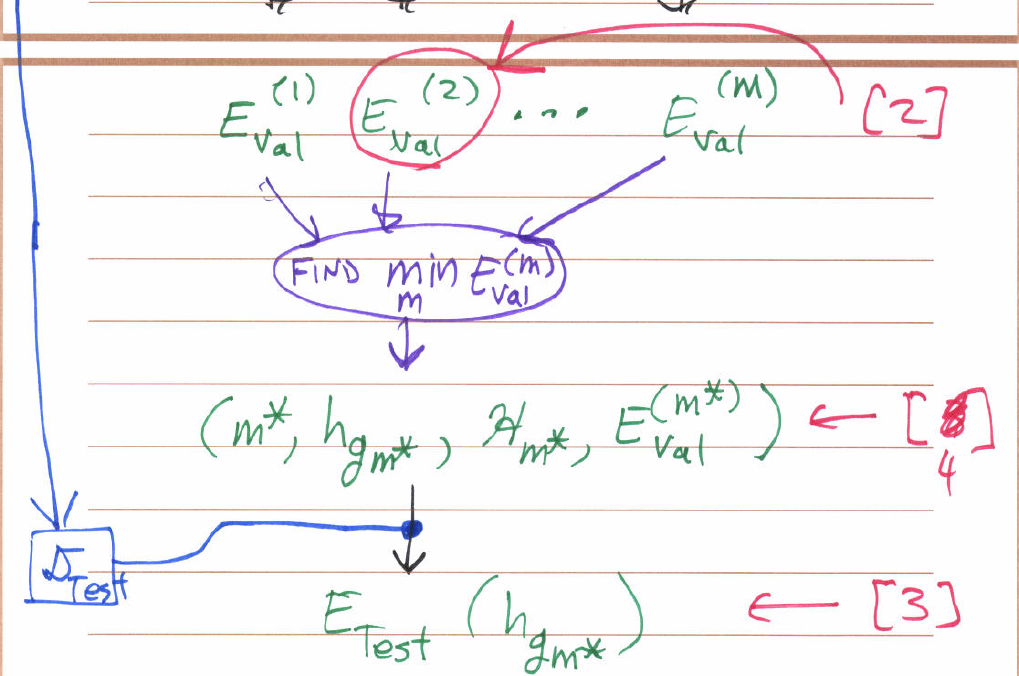 E_Val^(1) E_Val^(2) ... E_Val^(M) [2]
FIND min_m E_Val^(m)
(m*, h_g_m*, ℋ_m*, E_Val^(m*)) ← [4]
D_Test
E_Test (h_g_m*) ← [3]